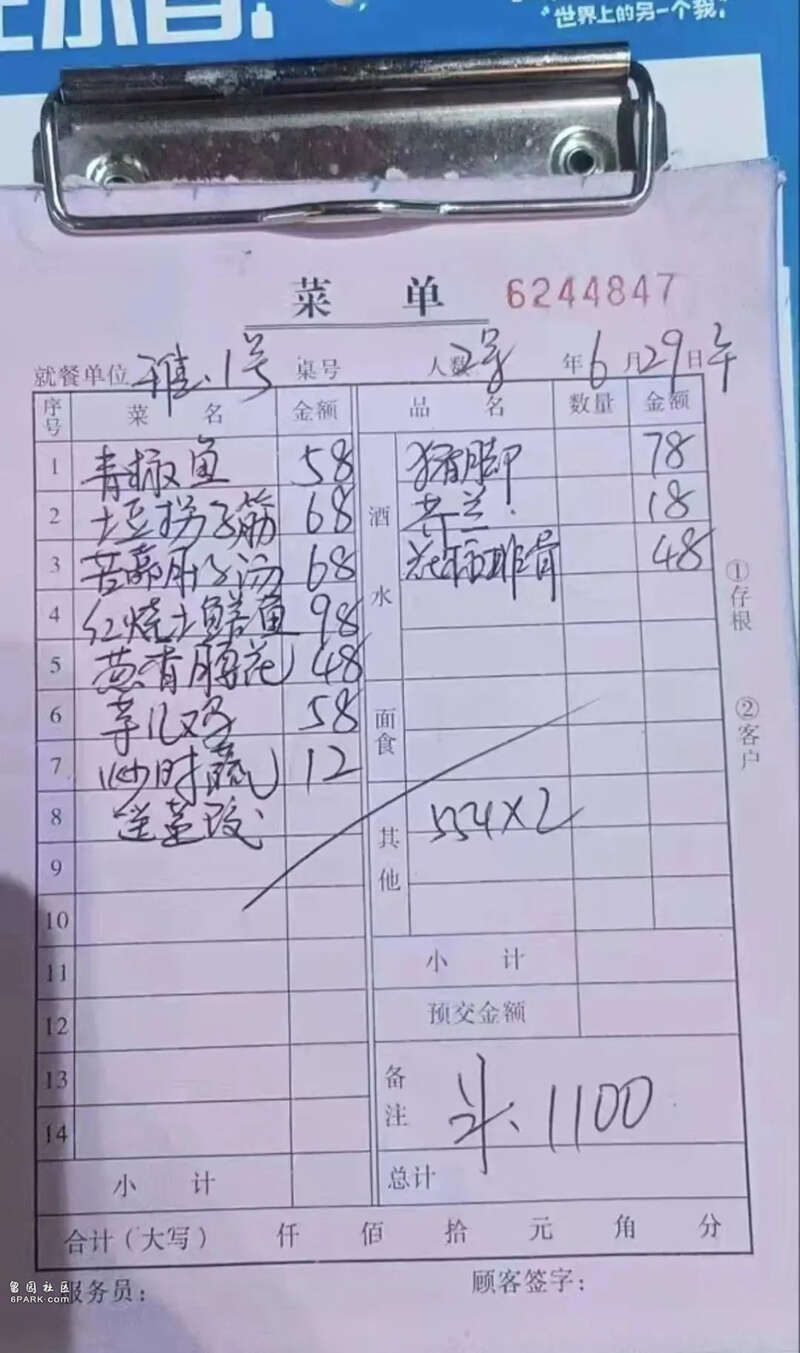 世界上的另一个我
菜 单
6244847
就餐单位 雅.1号 桌号 人数 年6月29日午
序号 菜 名 金额 品 名 数量 金额
1 青椒鱼 58 酒水 猪脚 78
2 土豆拐子筋 68 芥兰 18
3 68 排骨 48
4 红烧土鳝鱼 98
5 腰花 48
6 58 面食
7 炒时蔬 12
8
9 其他 554×2
10
11 小 计
12 预交金额
13 备注 1100
14
小 计 总计
合计(大写) 仟 佰 拾 元 角 分
服务员: 顾客签字:
①存根 ②客户
留园社区
6PARK.com